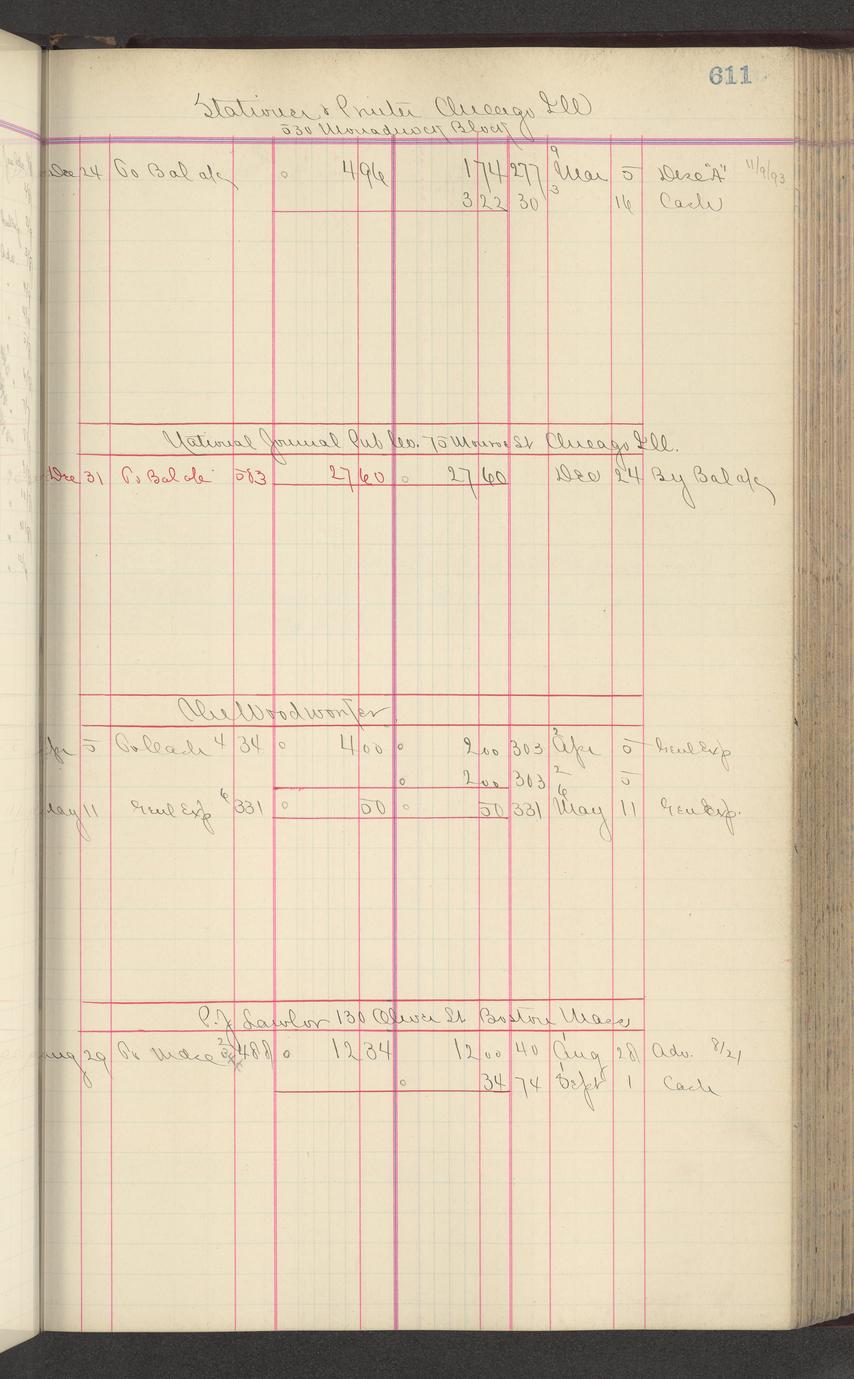 611
Stationer & Printer Chicago Ill
530 Monadnock Block
Dec 24 To Bal a/c 0 496 174 277 9 Mar 5 Dise "A" 11/9/93
322 30 3 16 Cash
National Journal Pub Co. 75 Monroe St Chicago Ill.
Dec 31 To Bal a/c 583 27 60 0 27 60 Dec 24 By Bal a/c
The Woodworker
5 To Cash 4 34 0 4 00 0 2 00 303 2 Apr 5 Genl Exp
0 2 00 303 2 5
May 11 Genl Exp 6 331 0 50 0 50 331 6 May 11 Gen Exp.
P. J. Lawlor 130 Oliver St Boston Mass
Aug 29 To Mdse 488 0 12 34 12 00 40 1 Aug 28 Adv. 8/21
0 34 74 1 Sept 1 Cash